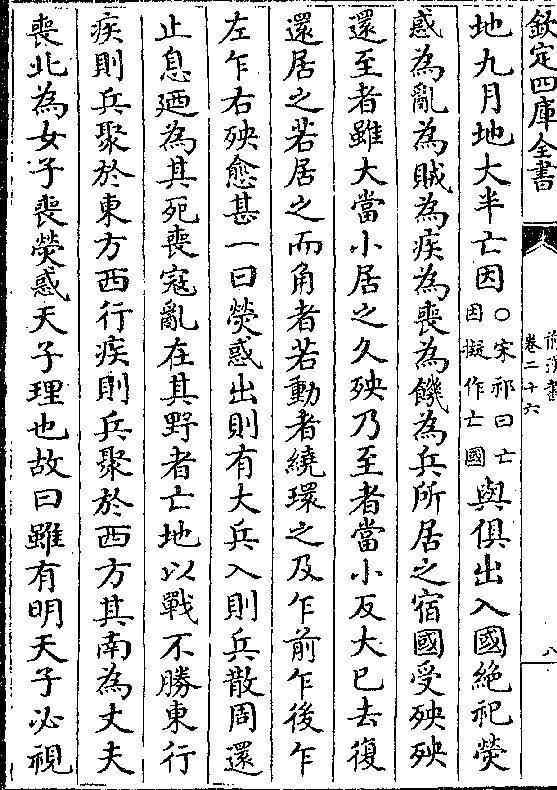 欽定四庫全書
前漢書
卷二十六
八
地九月地大半亡因○宋祁曰亡因擬作亡國與俱出入國絕祀熒
惑為亂為賊為疾為喪為饑為兵所居之宿國受殃殃
還至者雖大當小居之久殃乃至者當小反大已去復
還居之若居之而角者若動者繞環之及乍前乍後乍
左乍右殃愈甚一曰熒惑出則有大兵入則兵散周還
止息廼為其死喪寇亂在其野者亡地以戰不勝東行
疾則兵聚於東方西行疾則兵聚於西方其南為丈夫
喪北為女子喪熒惑天子理也故曰雖有明天子必視